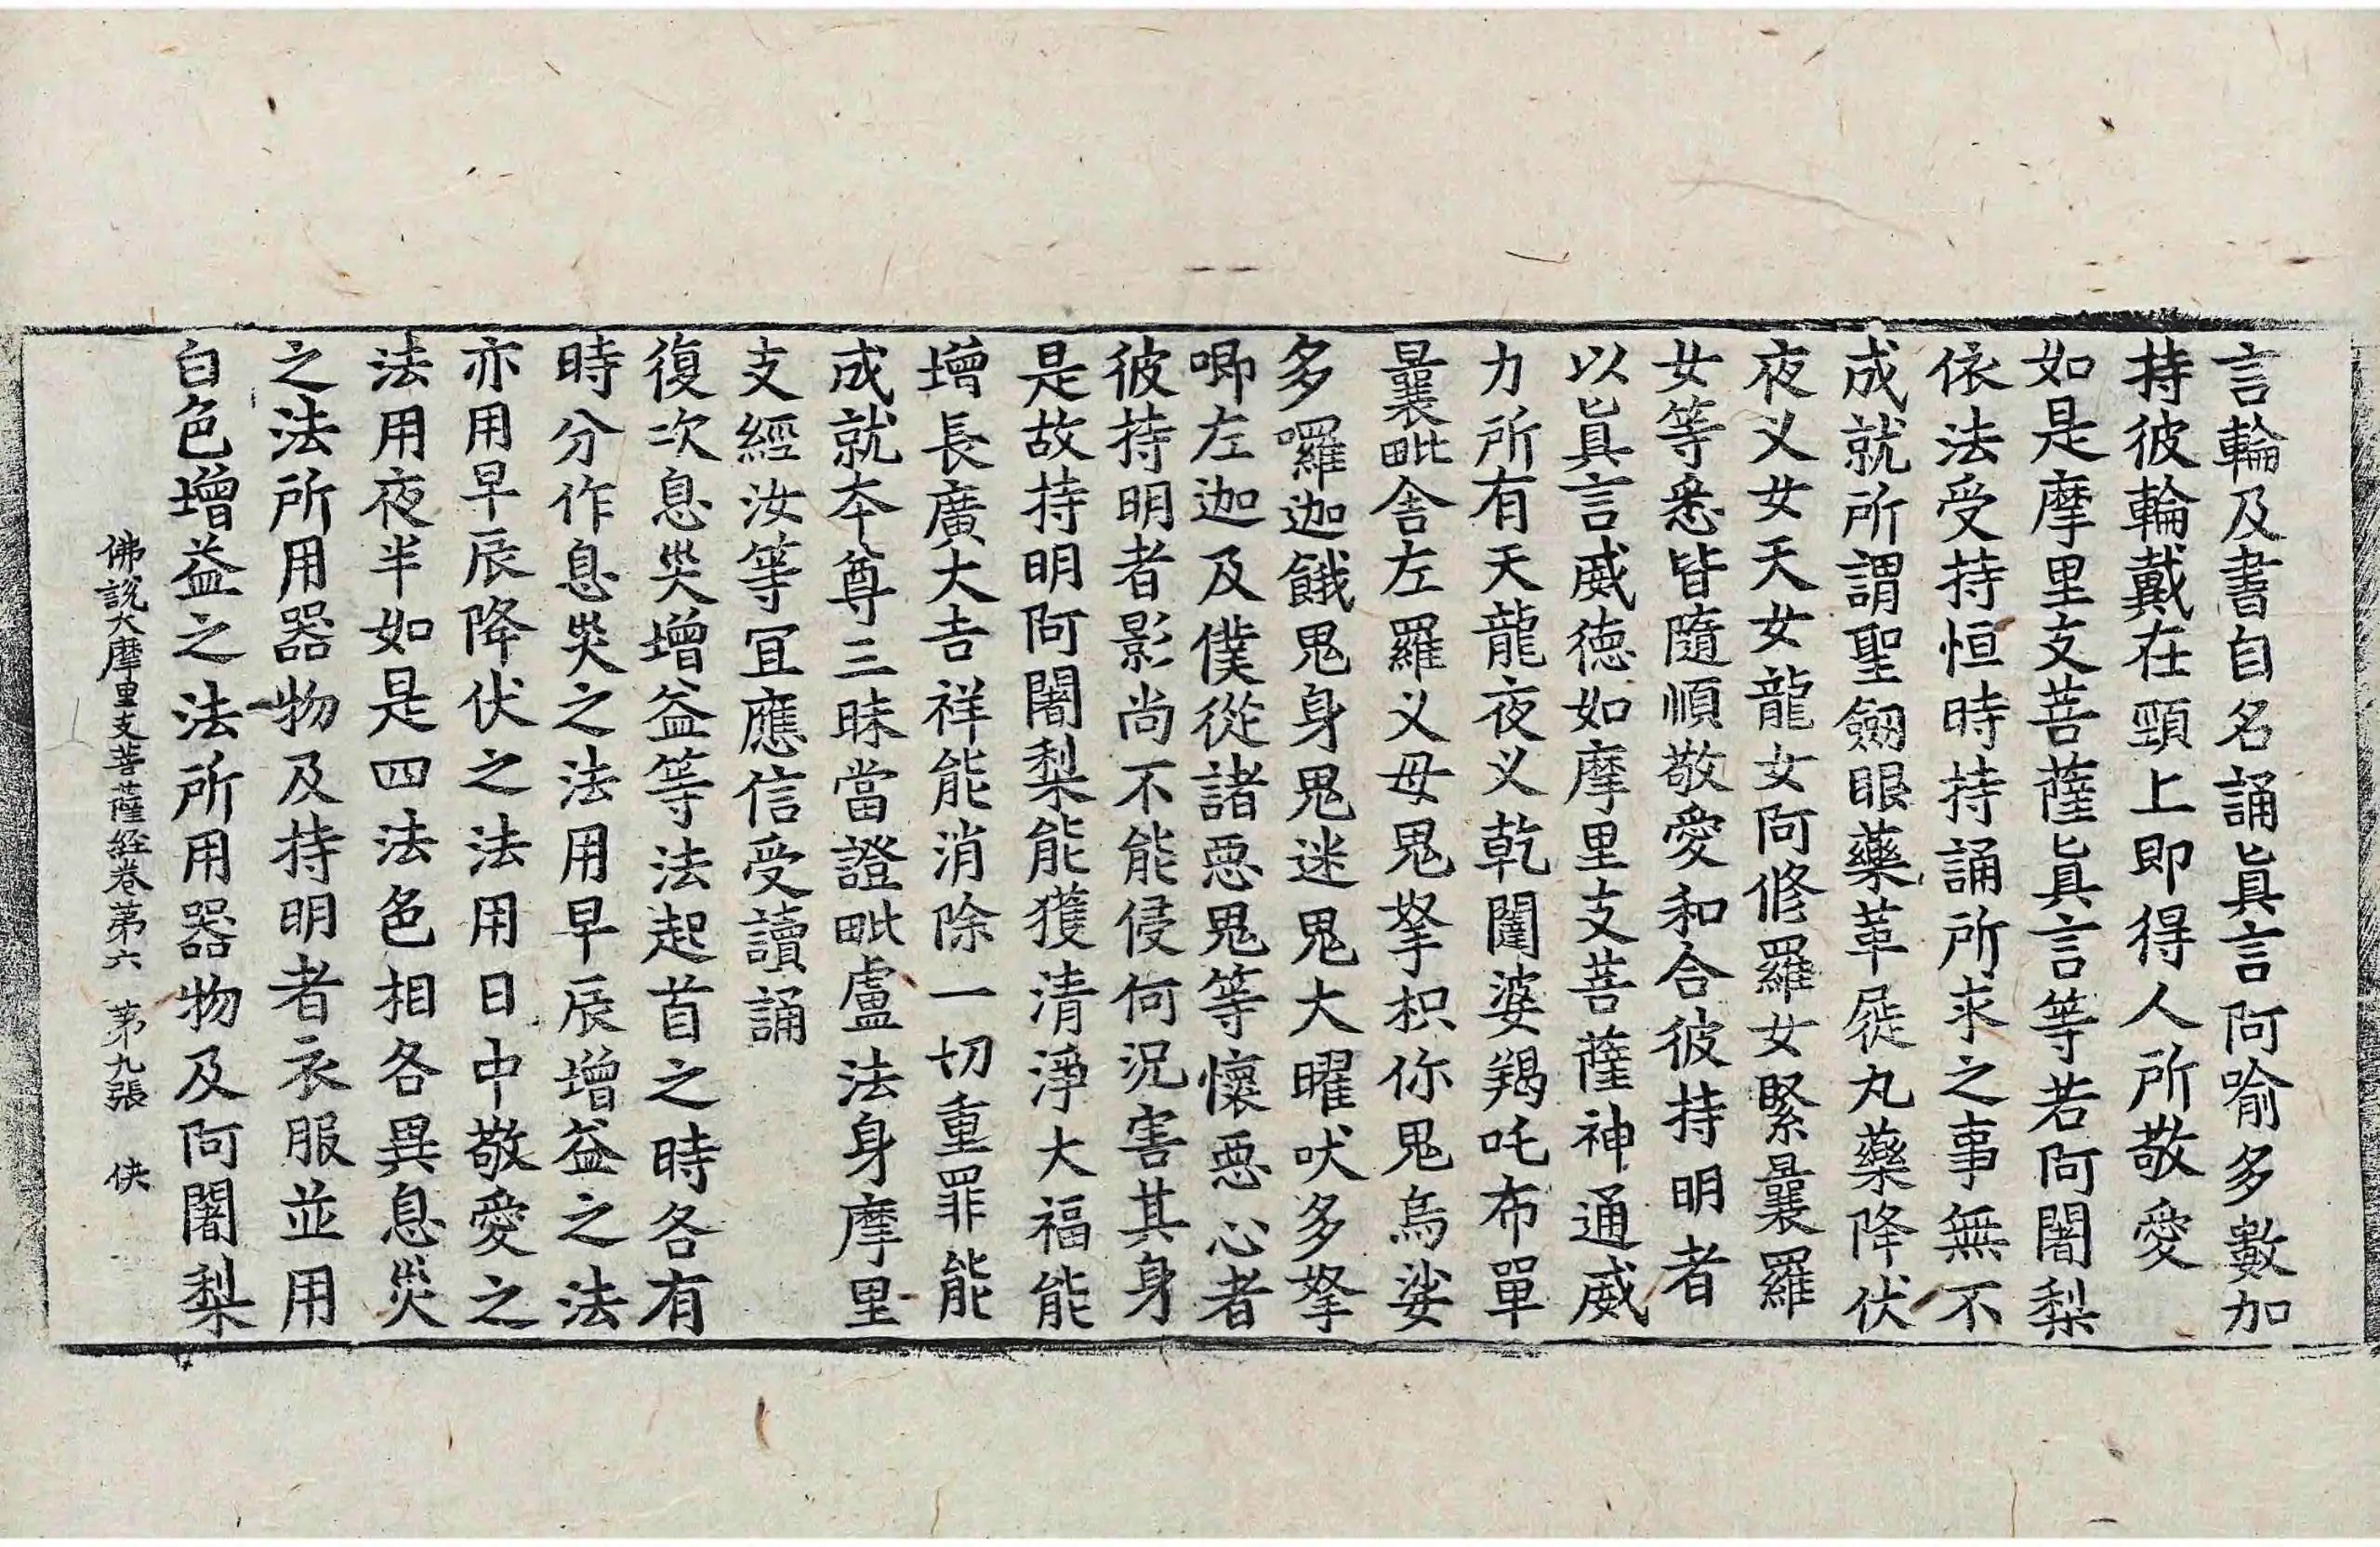 言輪及書自名誦眞言阿喻多數加
持彼輪戴在頸上即得人所敬愛
如是摩里支菩薩眞言等若阿闍梨
依法受持恒時持誦所求之事無不
成就所謂聖劔眼藥革屣丸藥降伏
夜叉女天女龍女阿修羅女緊曩羅
女等悉皆隨順敬愛和合彼持明者
以眞言威德如摩里支菩薩神通威
力所有天龍夜叉乾闥婆羯吒布單
曩毗舍左羅义母鬼拏枳你鬼烏娑
多囉迦餓鬼身鬼迷鬼大曜吠多拏
唧左迦及僕從諸惡鬼等懷惡心者
彼持明者影尚不能侵何況害其身
是故持明阿闍梨能獲清淨大福能
增長廣大吉祥能消除一切重罪能
成就本尊三昧當證毗盧法身摩里
支經汝等宜應信受讀誦
復次息災增益等法起首之時各有
時分作息災之法用早辰增益之法
亦用早辰降伏之法用日中敬愛之
法用夜半如是四法色相各異息災
之法所用器物及持明者衣服並用
白色增益之法所用器物及阿闍梨
佛說大摩里支菩薩経卷第六 第九張 俠